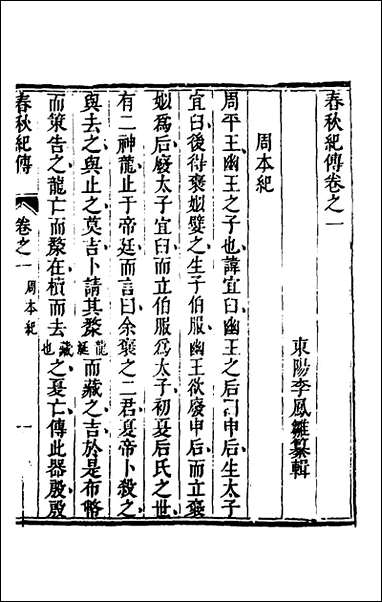 春秋紀傳卷之一
東陽李鳳雛纂輯
周本紀
周平王幽王之子也諱宜臼幽王之后曰申后生太子
宜臼後得褒姒嬖之生子伯服幽王欲廢申后而立褒
姒為后廢太子宜臼而立伯服為太子初夏后氏之世
有二神龍止于帝廷而言曰余褒之二君夏帝卜殺之
與去之與止之莫吉卜請其漦而藏之吉於是布幣
而策告之龍亡而漦在櫝而去之夏亡傳此器殷殷
龍漦藏也
春秋紀傳
卷之一
周本紀
一